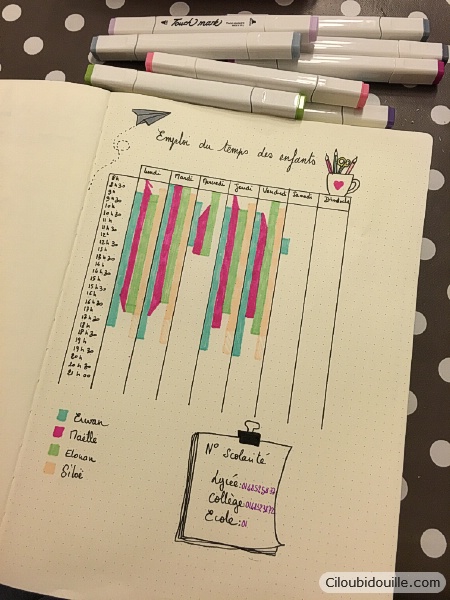 Touch mark
Emploi du temps des enfants
Lundi Mardi Mercredi Jeudi Vendredi Samedi Dimanche
8h
8h30
9h
9h30
10h
10h30
11h
12h
12h30
13h
13h30
14h
14h30
15h
15h30
16h
16h30
17h
17h30
18h
18h30
19h
19h30
20h
20h30
21h00
Erwan
Maëlle
Elouan
Siloé
N° Scolarité
Lycée:
Collège:
Ecole: 01
Ciloubidouille.com